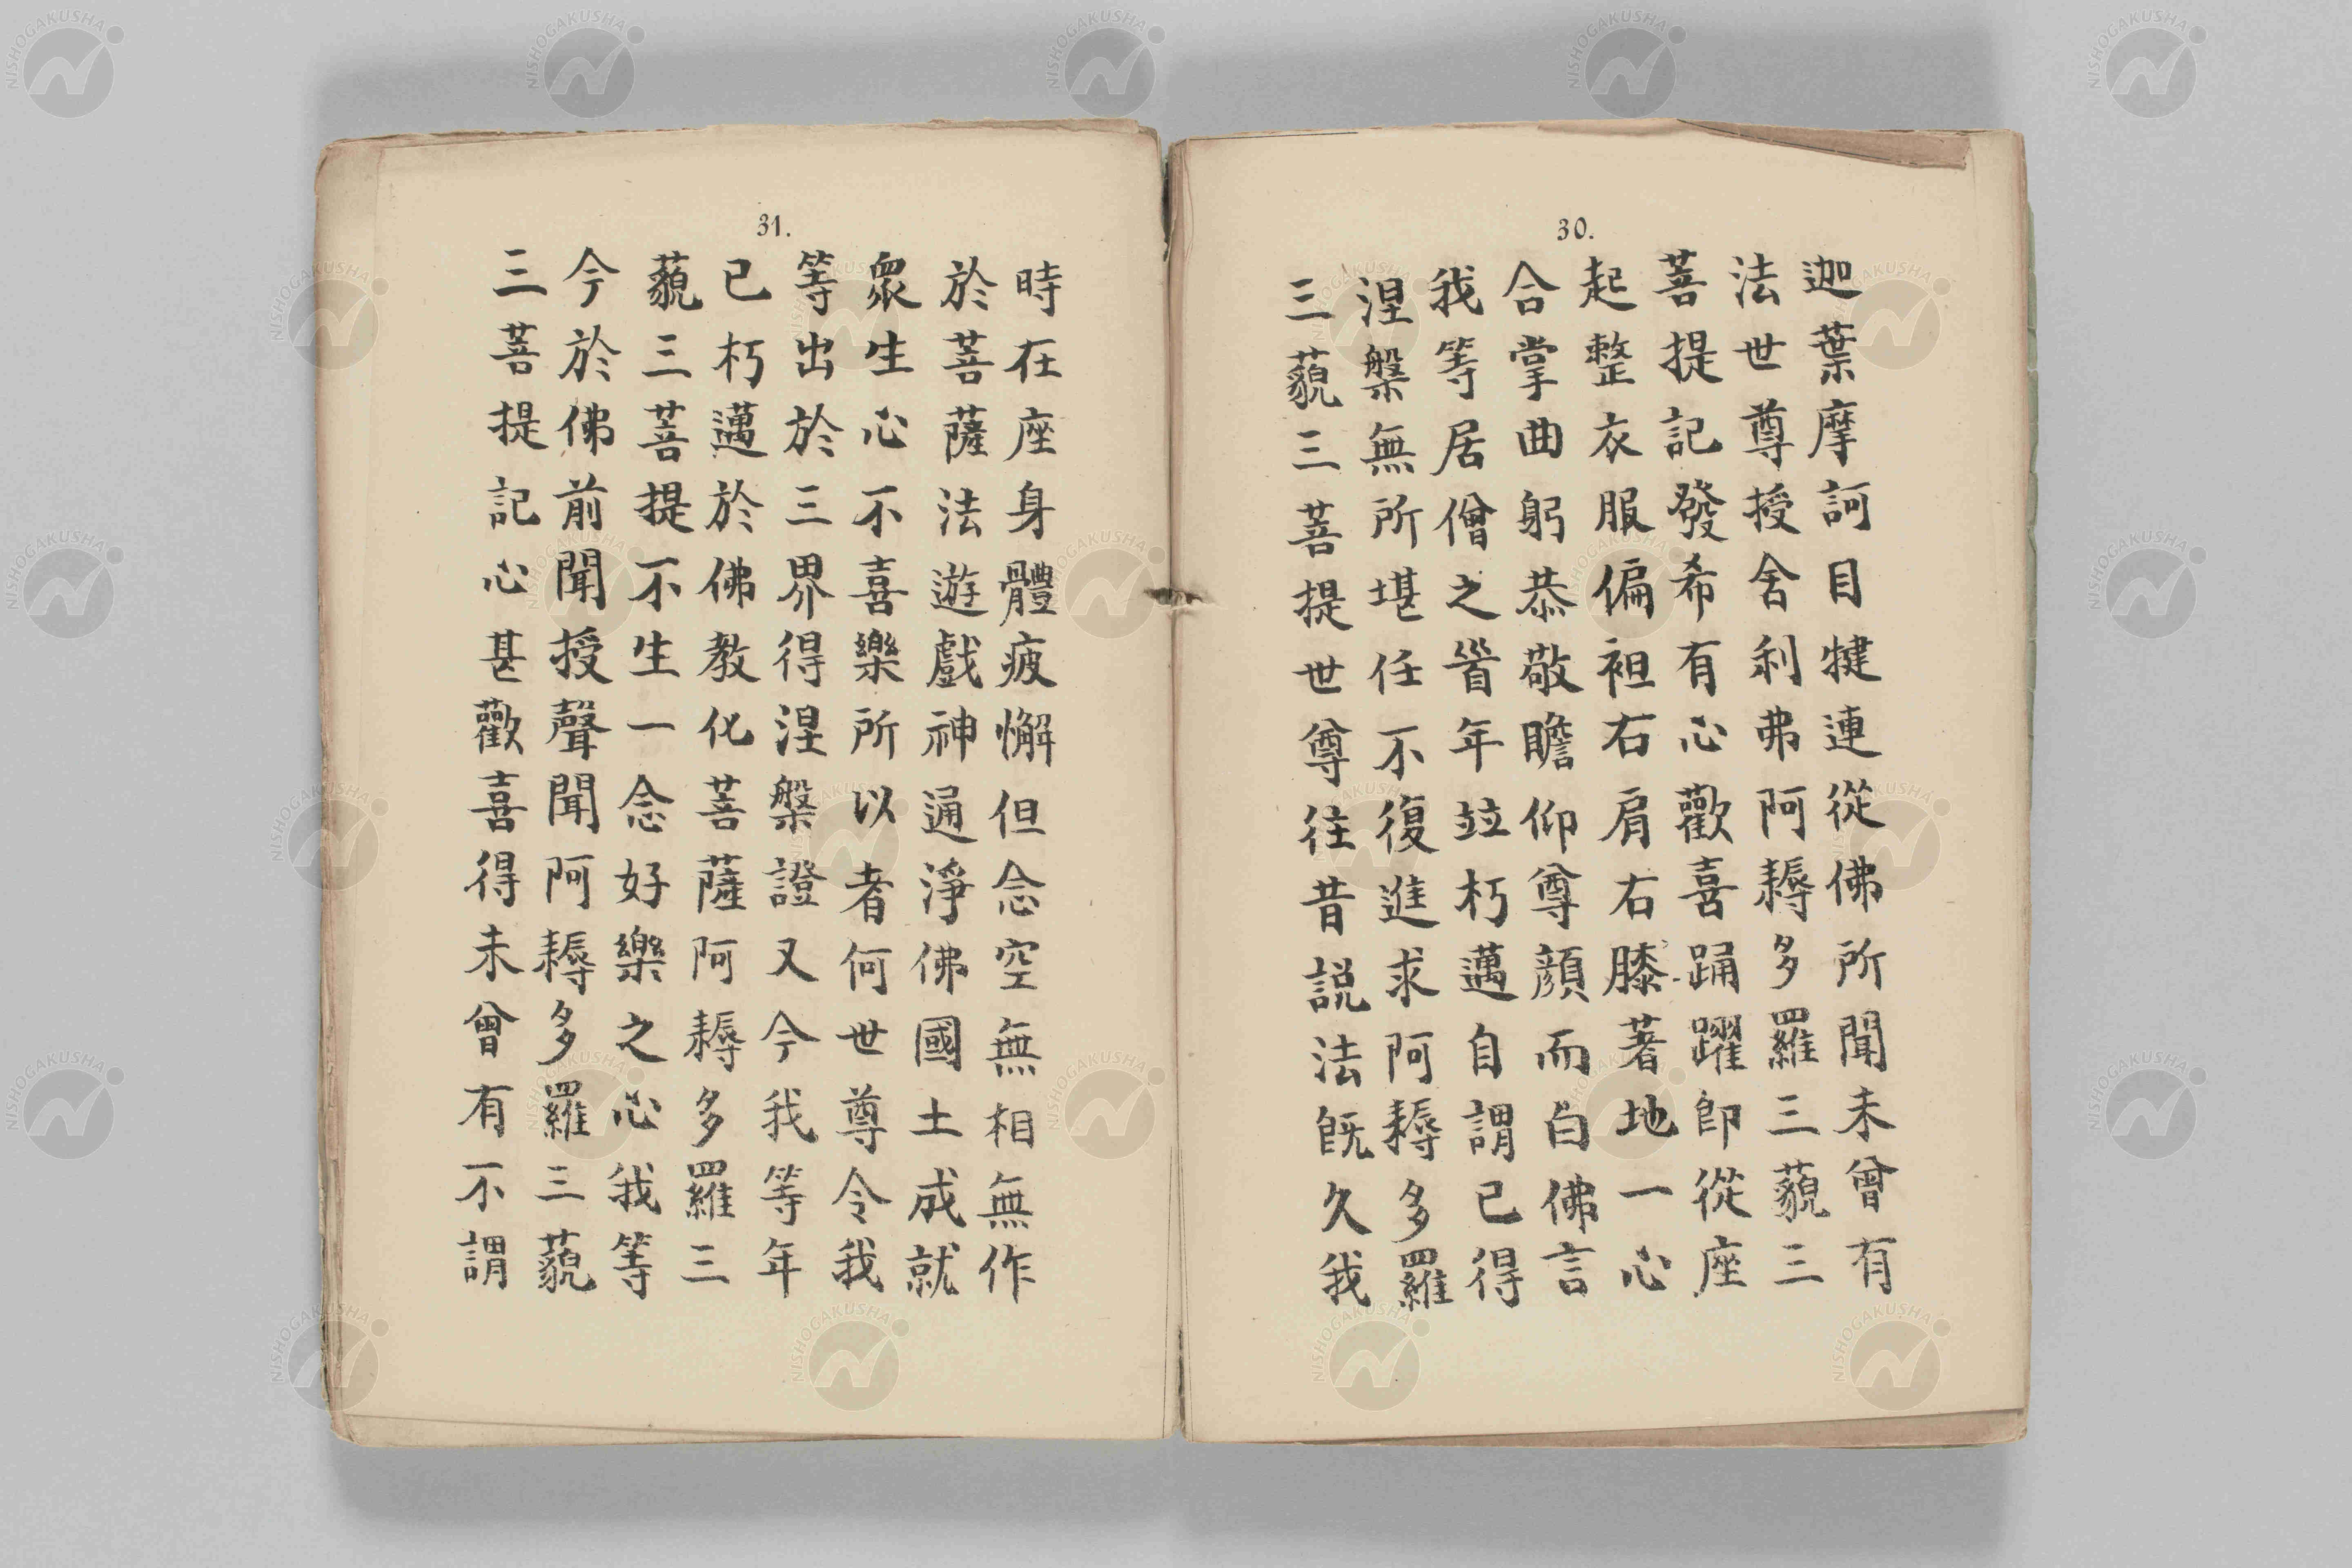 30.
迦葉摩訶目犍連從佛所聞未曾有
法世尊授舍利弗阿耨多羅三藐三
菩提記發希有心歡喜踊躍卽從座
起整衣服偏袒右肩右膝著地一心
合掌曲躬恭敬瞻仰尊顔而白佛言
我等居僧之首年竝朽邁自謂已得
涅槃無所堪任不復進求阿耨多羅
三藐三菩提世尊往昔説法既久我
31.
時在座身體疲懈但念空無相無作
於菩薩法遊戲神通淨佛國土成就
衆生心不喜樂所以者何世尊令我
等出於三界得涅槃證又今我等年
已朽邁於佛教化菩薩阿耨多羅三
藐三菩提不生一念好樂之心我等
今於佛前聞授聲聞阿耨多羅三藐
三菩提記心甚歡喜得未曾有不謂
NISHOGAKUSHA